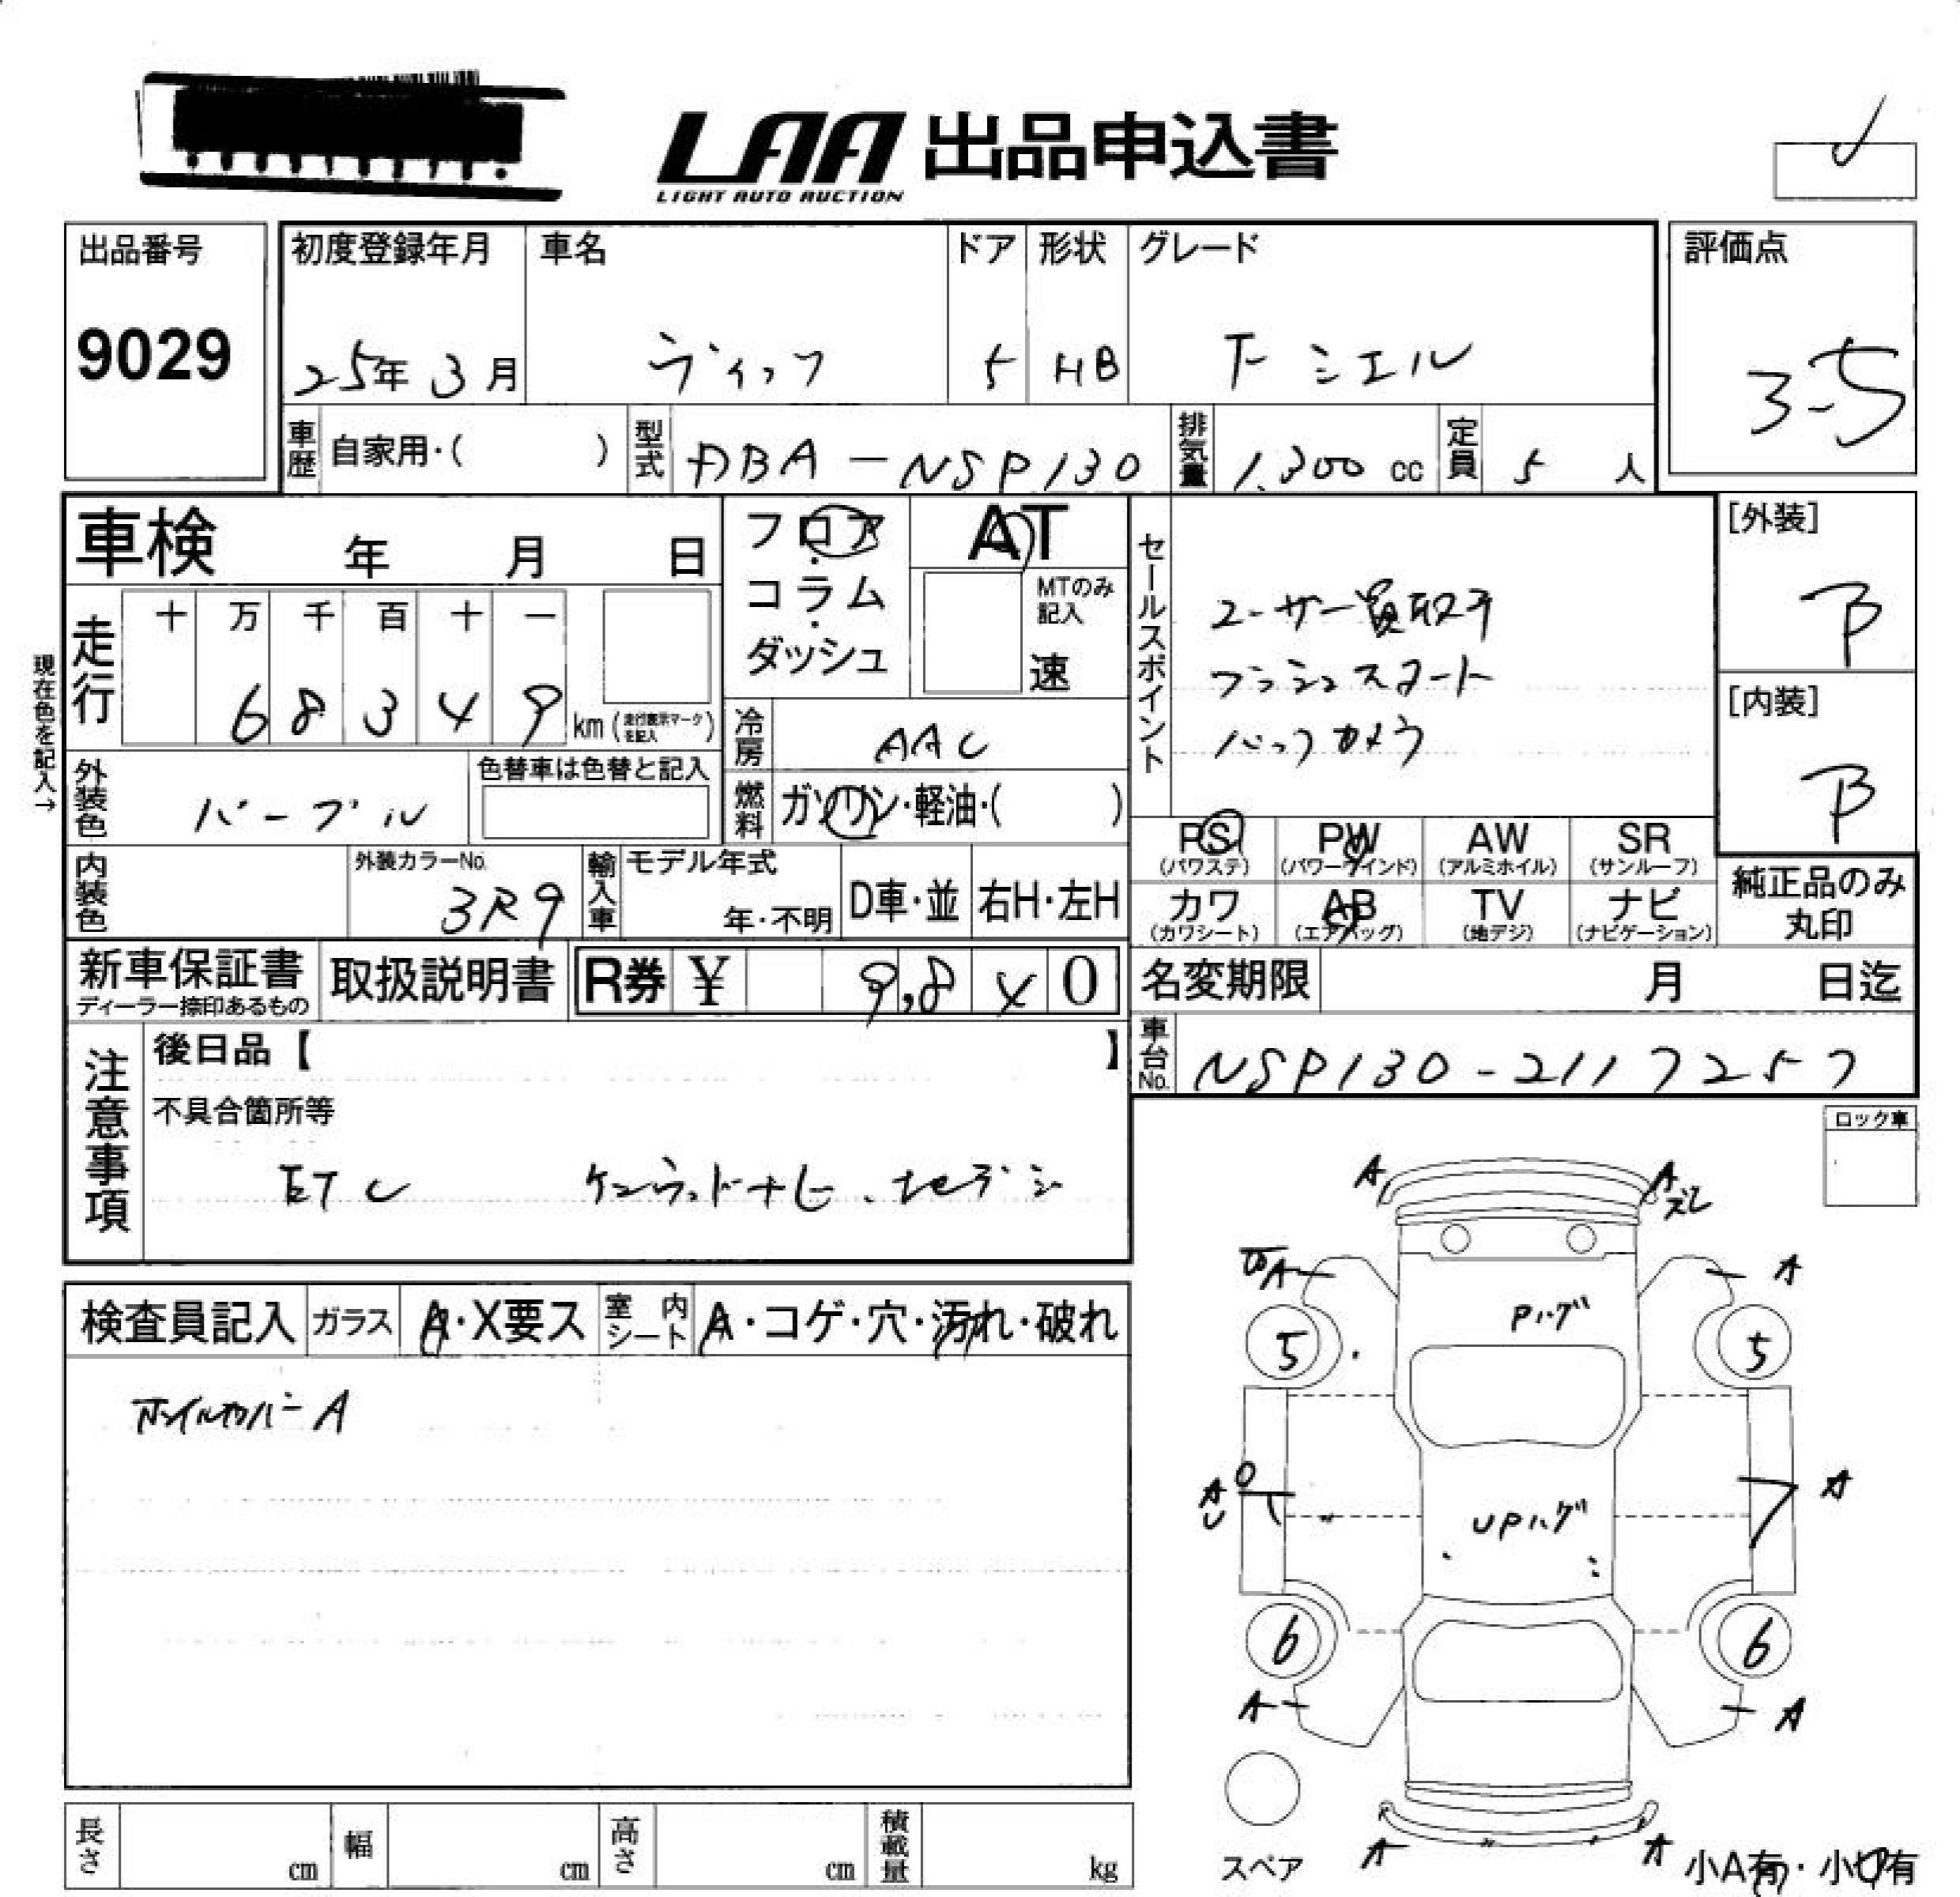 LAA 出品申込書
LIGHT AUTO AUCTION
出品番号
9029
初度登録年月
25年 3月
車名
ヴィッツ
ドア
5
形状
HB
グレード
F シエル
評価点
3.5
車歴 自家用・( )
型式 DBA-NSP130
排気量 1,300 cc
定員 5 人
車検 年 月 日
フロア・コラム・ダッシュ
AT
MTのみ記入
速
セールスポイント
ユーザー買取り
プッシュスタート
バックカメラ
[外装]
B
[内装]
B
現在色を記入→
走行 十 万 千 百 十 一
6 8 3 4 9 km (走行表示マークを記入)
冷房 AAC
外装色 パープル
色替車は色替と記入
燃料 ガソリン・軽油・( )
PS (パワステ)
PW (パワーウインド)
AW (アルミホイル)
SR (サンルーフ)
カワ (カワシート)
AB (エアバッグ)
TV (地デジ)
ナビ (ナビゲーション)
純正品のみ丸印
内装色
外装カラーNo.
3R9
輸入車
モデル年式
年・不明
D車・並
右H・左H
新車保証書
ディーラー捺印あるもの
取扱説明書
R券 ¥ 9,8 0
名変期限 月 日迄
車台No. NSP130-2117257
注意事項
後日品【 】
不具合箇所等
ETC ケンウッドナビ、地デジ
ロック車
検査員記入
ガラス A・X要ス
室内シート A・コゲ・穴・汚れ・破れ
ホイルカバー A
A
A
ズレ
A
A
Pハゲ
5
5
A
A
UPハゲ
6
6
A
A
A
A
スペア
小A有・小U有
長さ cm
幅 cm
高さ cm
積載量 kg